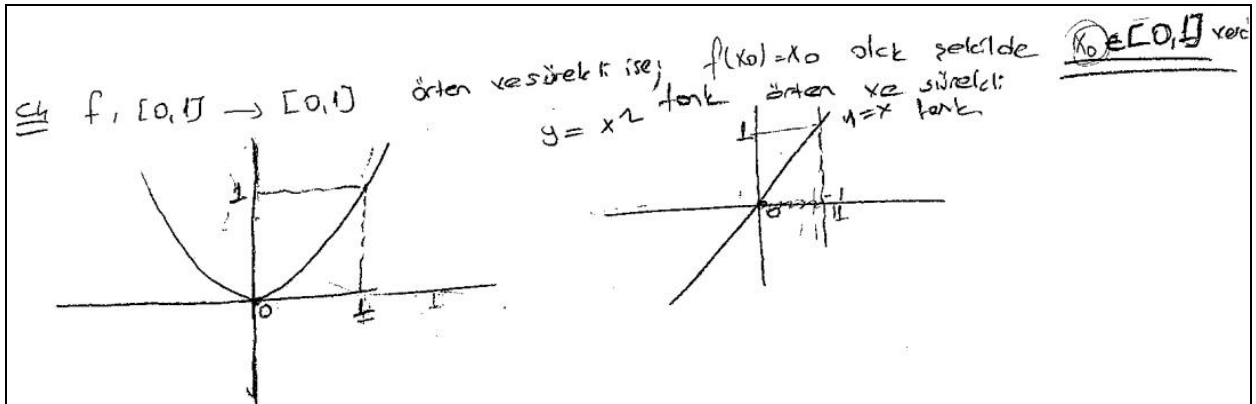 Ç4 f, [0,1] → [0,1] örten ve sürekli ise; f(x0)=x0 olck şekilde x0 ∈ [0,1] verd
y = x² fonk örten ve sürekli
y=x fonk
1
0
1
1
0
1